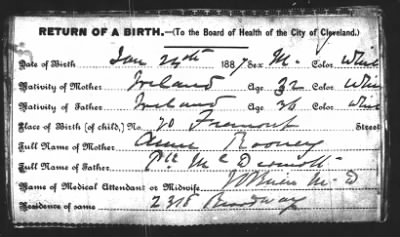 RETURN OF A BIRTH.—(To the Board of Health of the City of Cleveland.)
Date of Birth Jan 24th 1887 Sex M. Color White
Nativity of Mother Ireland Age 32 Color White
Nativity of Father Ireland Age 36 Color White
Place of Birth (of child,) No. 70 Fremont Street
Full Name of Mother Anne Rooney
Full Name of Father McDermott
Name of Medical Attendant or Midwife, J O'Brien M-D
Residence of same 2318 Broadway